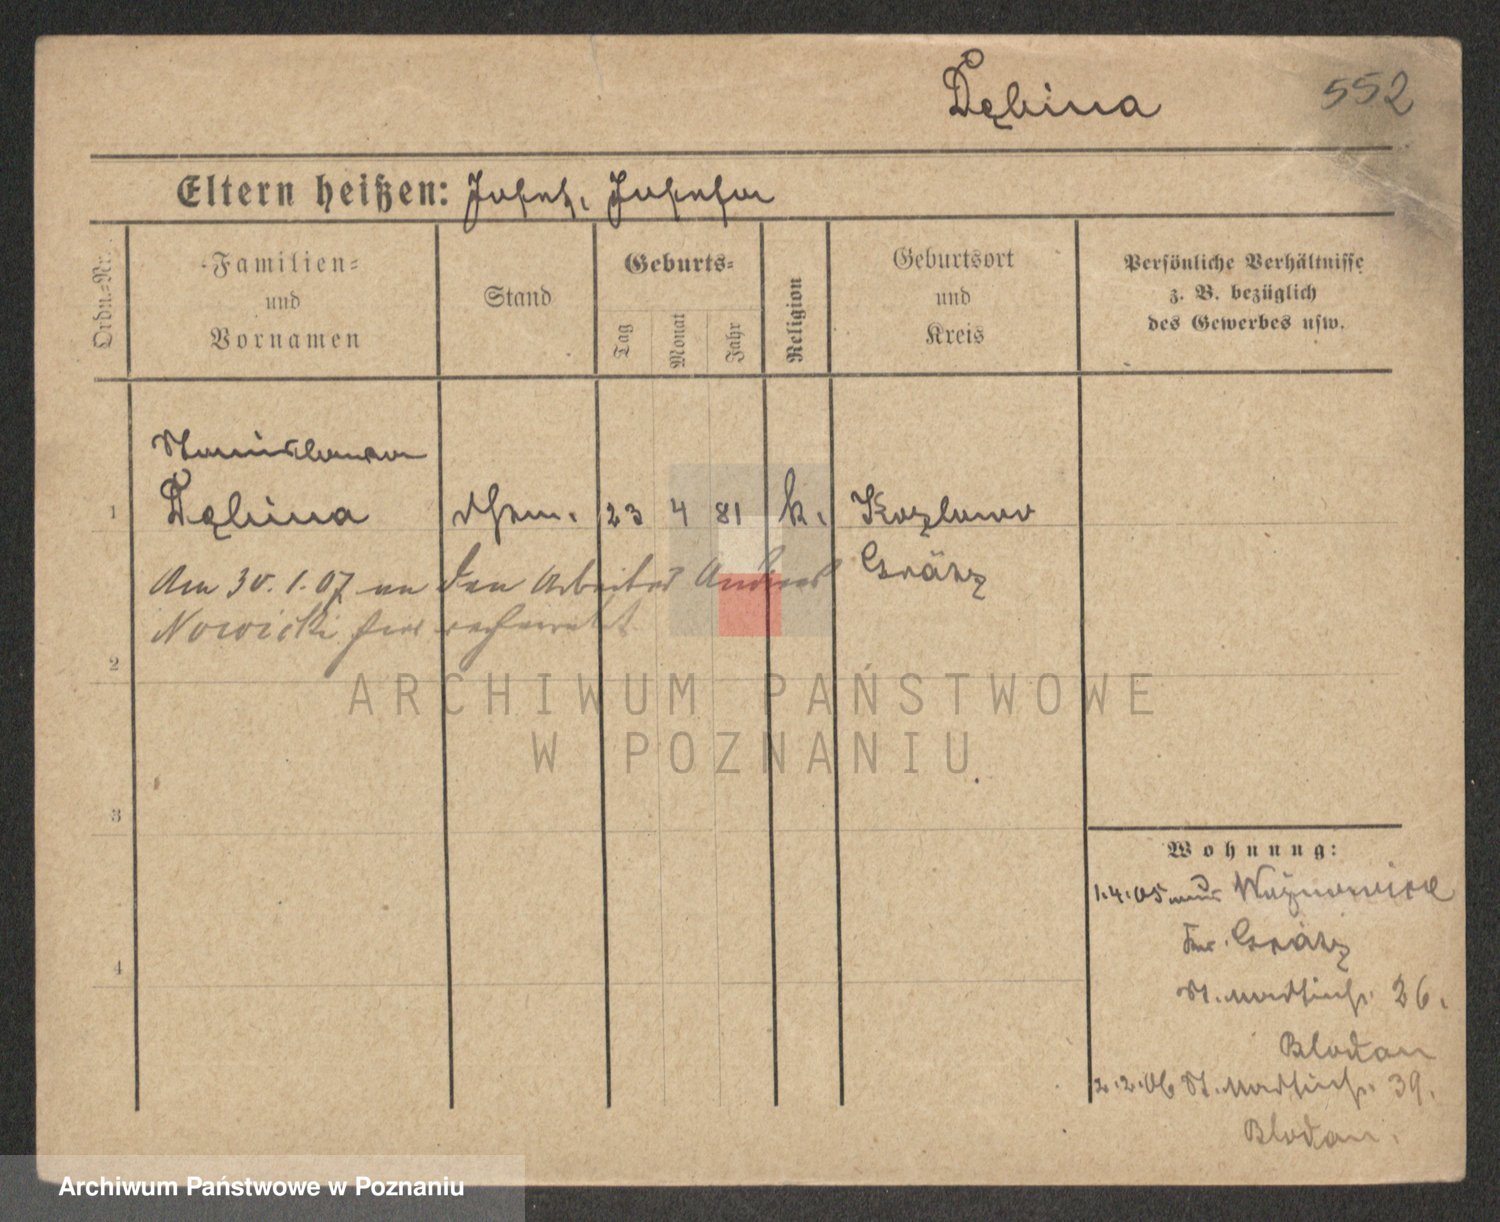 Dębina 552
Eltern heißen: Josef, Josefa
Ordn.-Nr.
Familien-
und
Vornamen
Stand
Geburts-
Tag
Monat
Jahr
Religion
Geburtsort
und
Kreis
Persönliche Verhältnisse
z. B. bezüglich
des Gewerbes usw.
Stanislawa
1 Dębina 23 4 81 k. Kozlowo
Grätz
Am 30.1.07 an den Arbeiter Andreas
Nowicki hier verheiratet
2
3
4
Wohnung:
1.4.05 aus
Kr. Grätz
St. Martinstr. 26.
2.2.06 St. Martinstr. 39.
ARCHIWUM PAŃSTWOWE
W POZNANIU
Archiwum Państwowe w Poznaniu